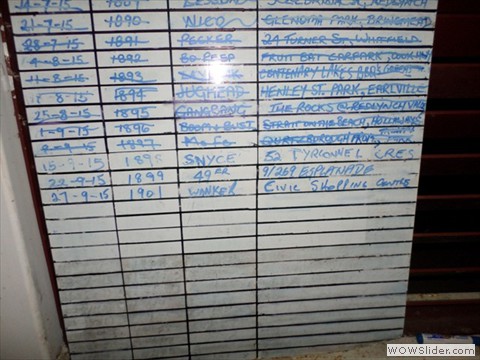 21-7-15 1890 NICO GLENOMA PARK, BRINSMEAD
28-7-15 1891 PECKER 24 TURNER ST, WHITEFIELD
4-8-15 1892 BO PEEP FRUIT BAT CARPARK,
11-8-15 1893 CENTENARY LAKES
8-15 1894 JUGHEAD HENLEY ST. PARK, EARLVILLE
25-8-15 1895 GANGBANG THE ROCKS @ REDLYNCH
1-9-15 1896 BOOM & BUST STRAIT ON THE BEACH, HOLLOWAYS
-9-15 1897
15-9-15 1898 SNYCE 52 TYRCONNEL CRES
22-9-15 1899 49ER 91/209 ESPLANADE
27-9-15 1901 WANKER CIVIC SHOPPING CENTRE
WOWSlider.com